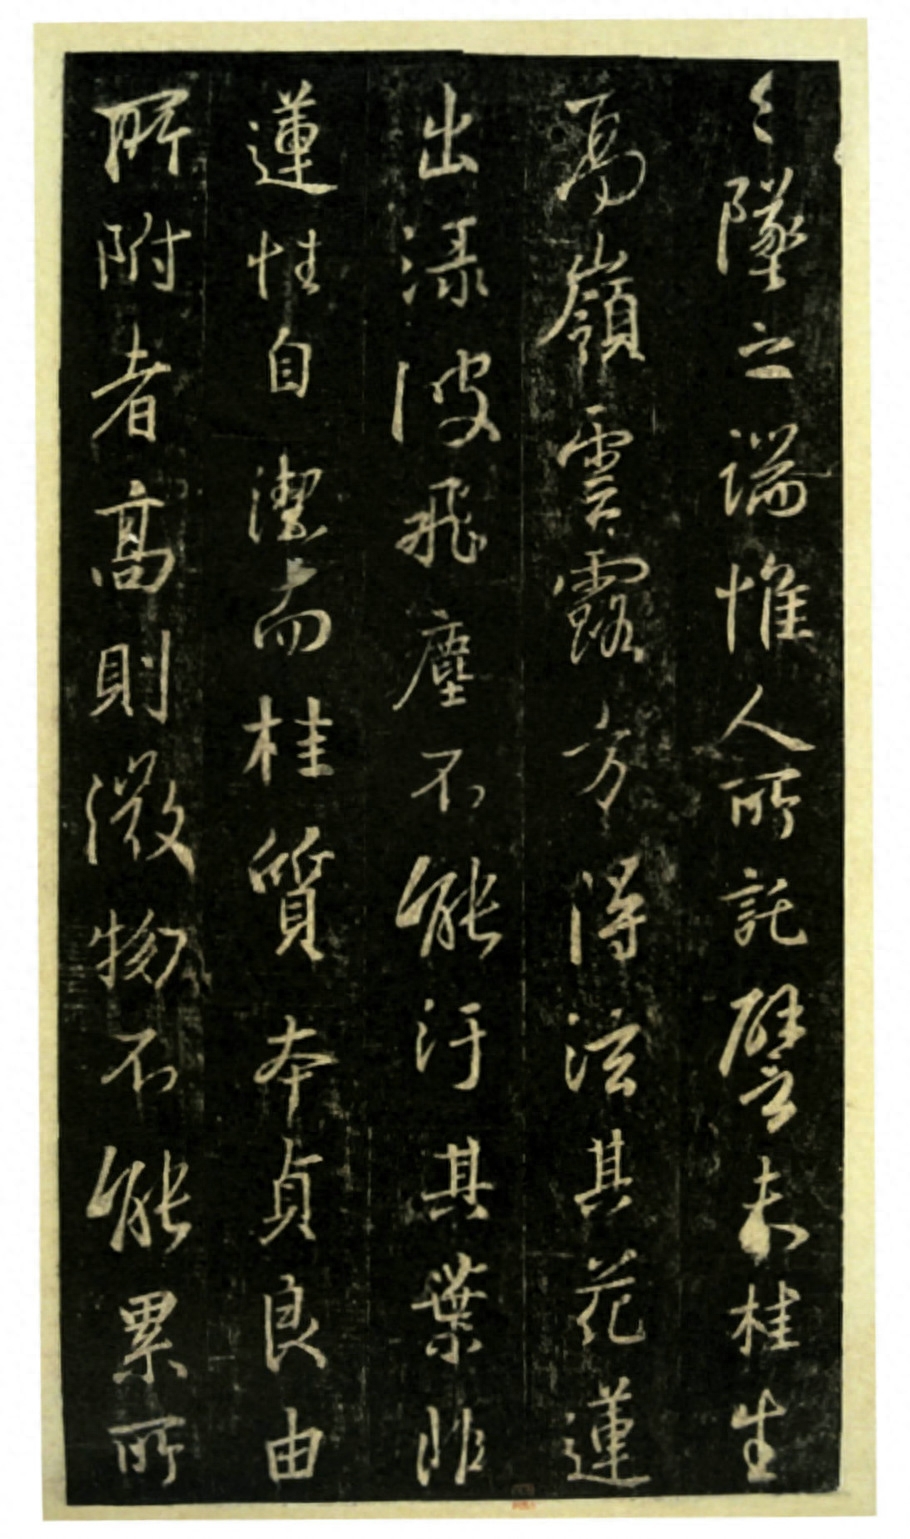 々墜之端惟人所託譬夫桂生
高嶺雲露方得泫其花蓮
出淥波飛塵不能汙其葉非
蓮性自潔而桂質本貞良由
所附者高則微物不能累所